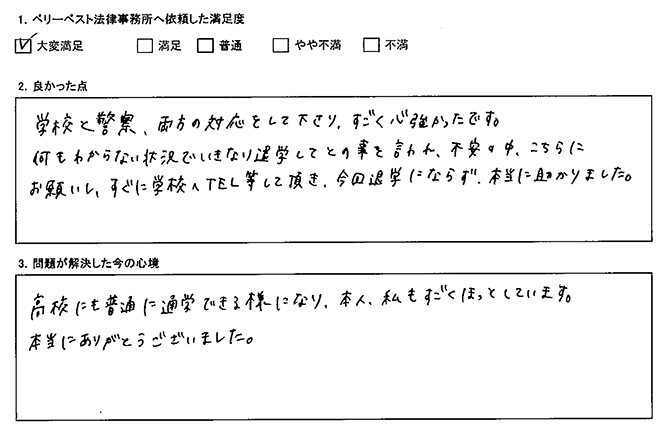 1. ベリーベスト法律事務所へ依頼した満足度
☑大変満足 □満足 □普通 □やや不満 □不満
2. 良かった点
学校と警察、両方の対応をして下さり、すごく心強かったです。
何もわからない状況でいきなり退学してとの事を言われ、不安な中、こちらに
お願いし、すぐに学校へTEL等して頂き、今回退学にならず、本当に助かりました。
3. 問題が解決した今の心境
高校にも普通に通学できる様になり、本人、私もすごくほっとしています。
本当にありがとうございました。